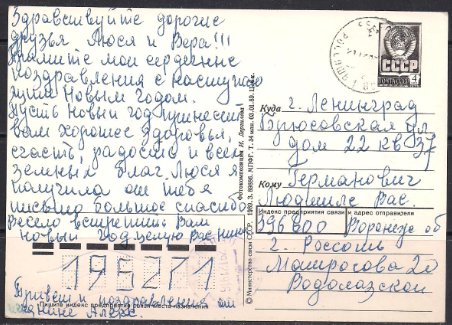 Здравствуйте дорогие
друзья Люся и Вера!!!
Примите мои сердечные
поздравления с наступаю
щим Новым годом.
Пусть Новый год принесет
Вам хорошее здоровья,
счастья, радости и всех
земных благ. Люся я
получила от тебя
письмо большое спасибо
Весело встретить Вам
Новый год.
195271
Привет и поздравления от
СССР
ПОЧТА
4
Куда г. Ленинград
Брюсовская ул
дом 22 кв 37
Кому Германович
Людмиле Вас.
Индекс предприятия связи и адрес отправителя
396800 Воронеж об
г. Россошь
Матросова 20
Водолазской
Пишите индекс предприятия связи места назначения